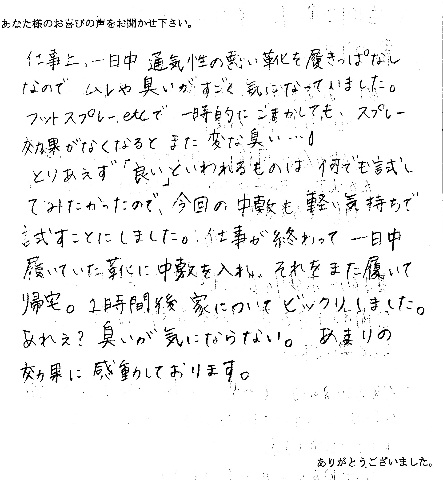 あなた様のお喜びの声をお聞かせ下さい。
仕事上、一日中 通気性の悪い靴を履きっぱなし
なので ムレや臭いがすごく気になっていました。
フットスプレーetcで 一時的にごまかしても、スプレー
効果がなくなると また 変な臭い…!
とりあえず「良い」といわれるものは 何でも試し
てみたかったので、今回の中敷も 軽い気持ちで
試すことにしました。仕事が終わって 一日中
履いていた靴に中敷を入れ、それをまた履いて
帰宅。2時間後 家についてビックリしました。
あれぇ?臭いが気にならない。あまりの
効果に感動しております。
ありがとうございました。